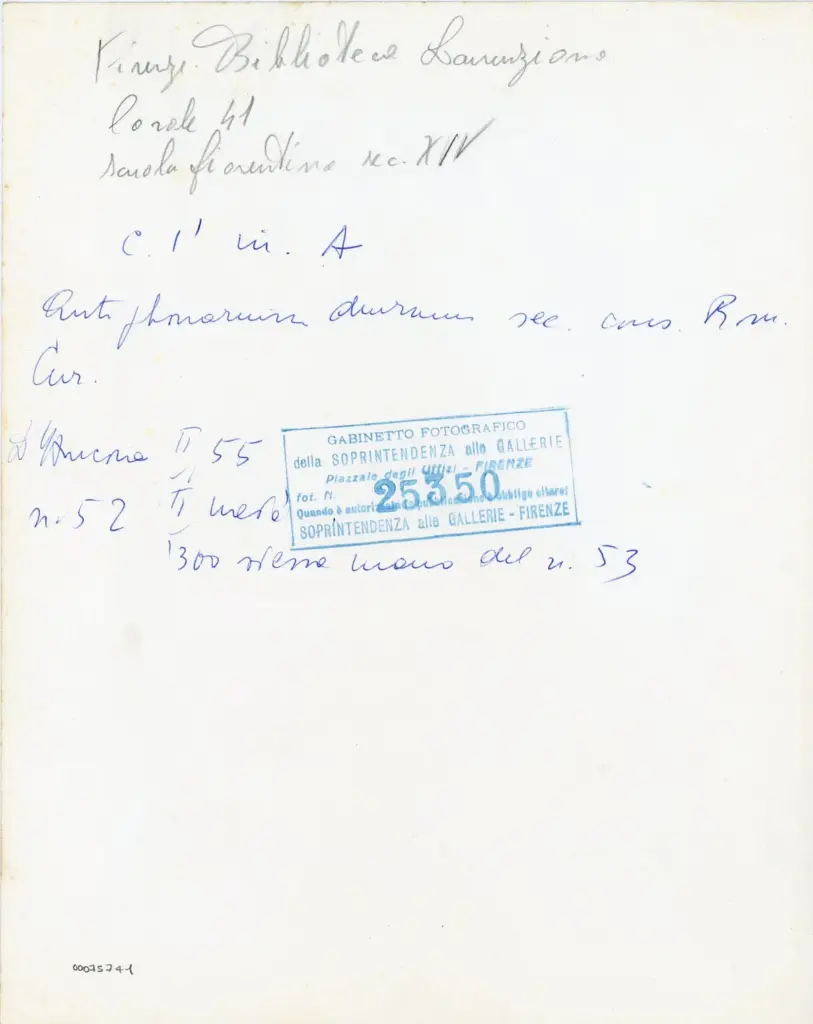 Firenze. Biblioteca Laurenziana
Corale 41
scuola fiorentina sec. XIV
C. 1' in. A
Antiphonarium diurnum sec. cons. Rom.
Cur.
D'Ancona II 55
n. 52 II metà
'300 stessa mano del n. 53
GABINETTO FOTOGRAFICO
della SOPRINTENDENZA alle GALLERIE
Piazzale degli Uffizi - FIRENZE
fot. N. 25350
Quando è autorizzata la pubblicazione obbligo citare:
SOPRINTENDENZA alle GALLERIE - FIRENZE
00075741